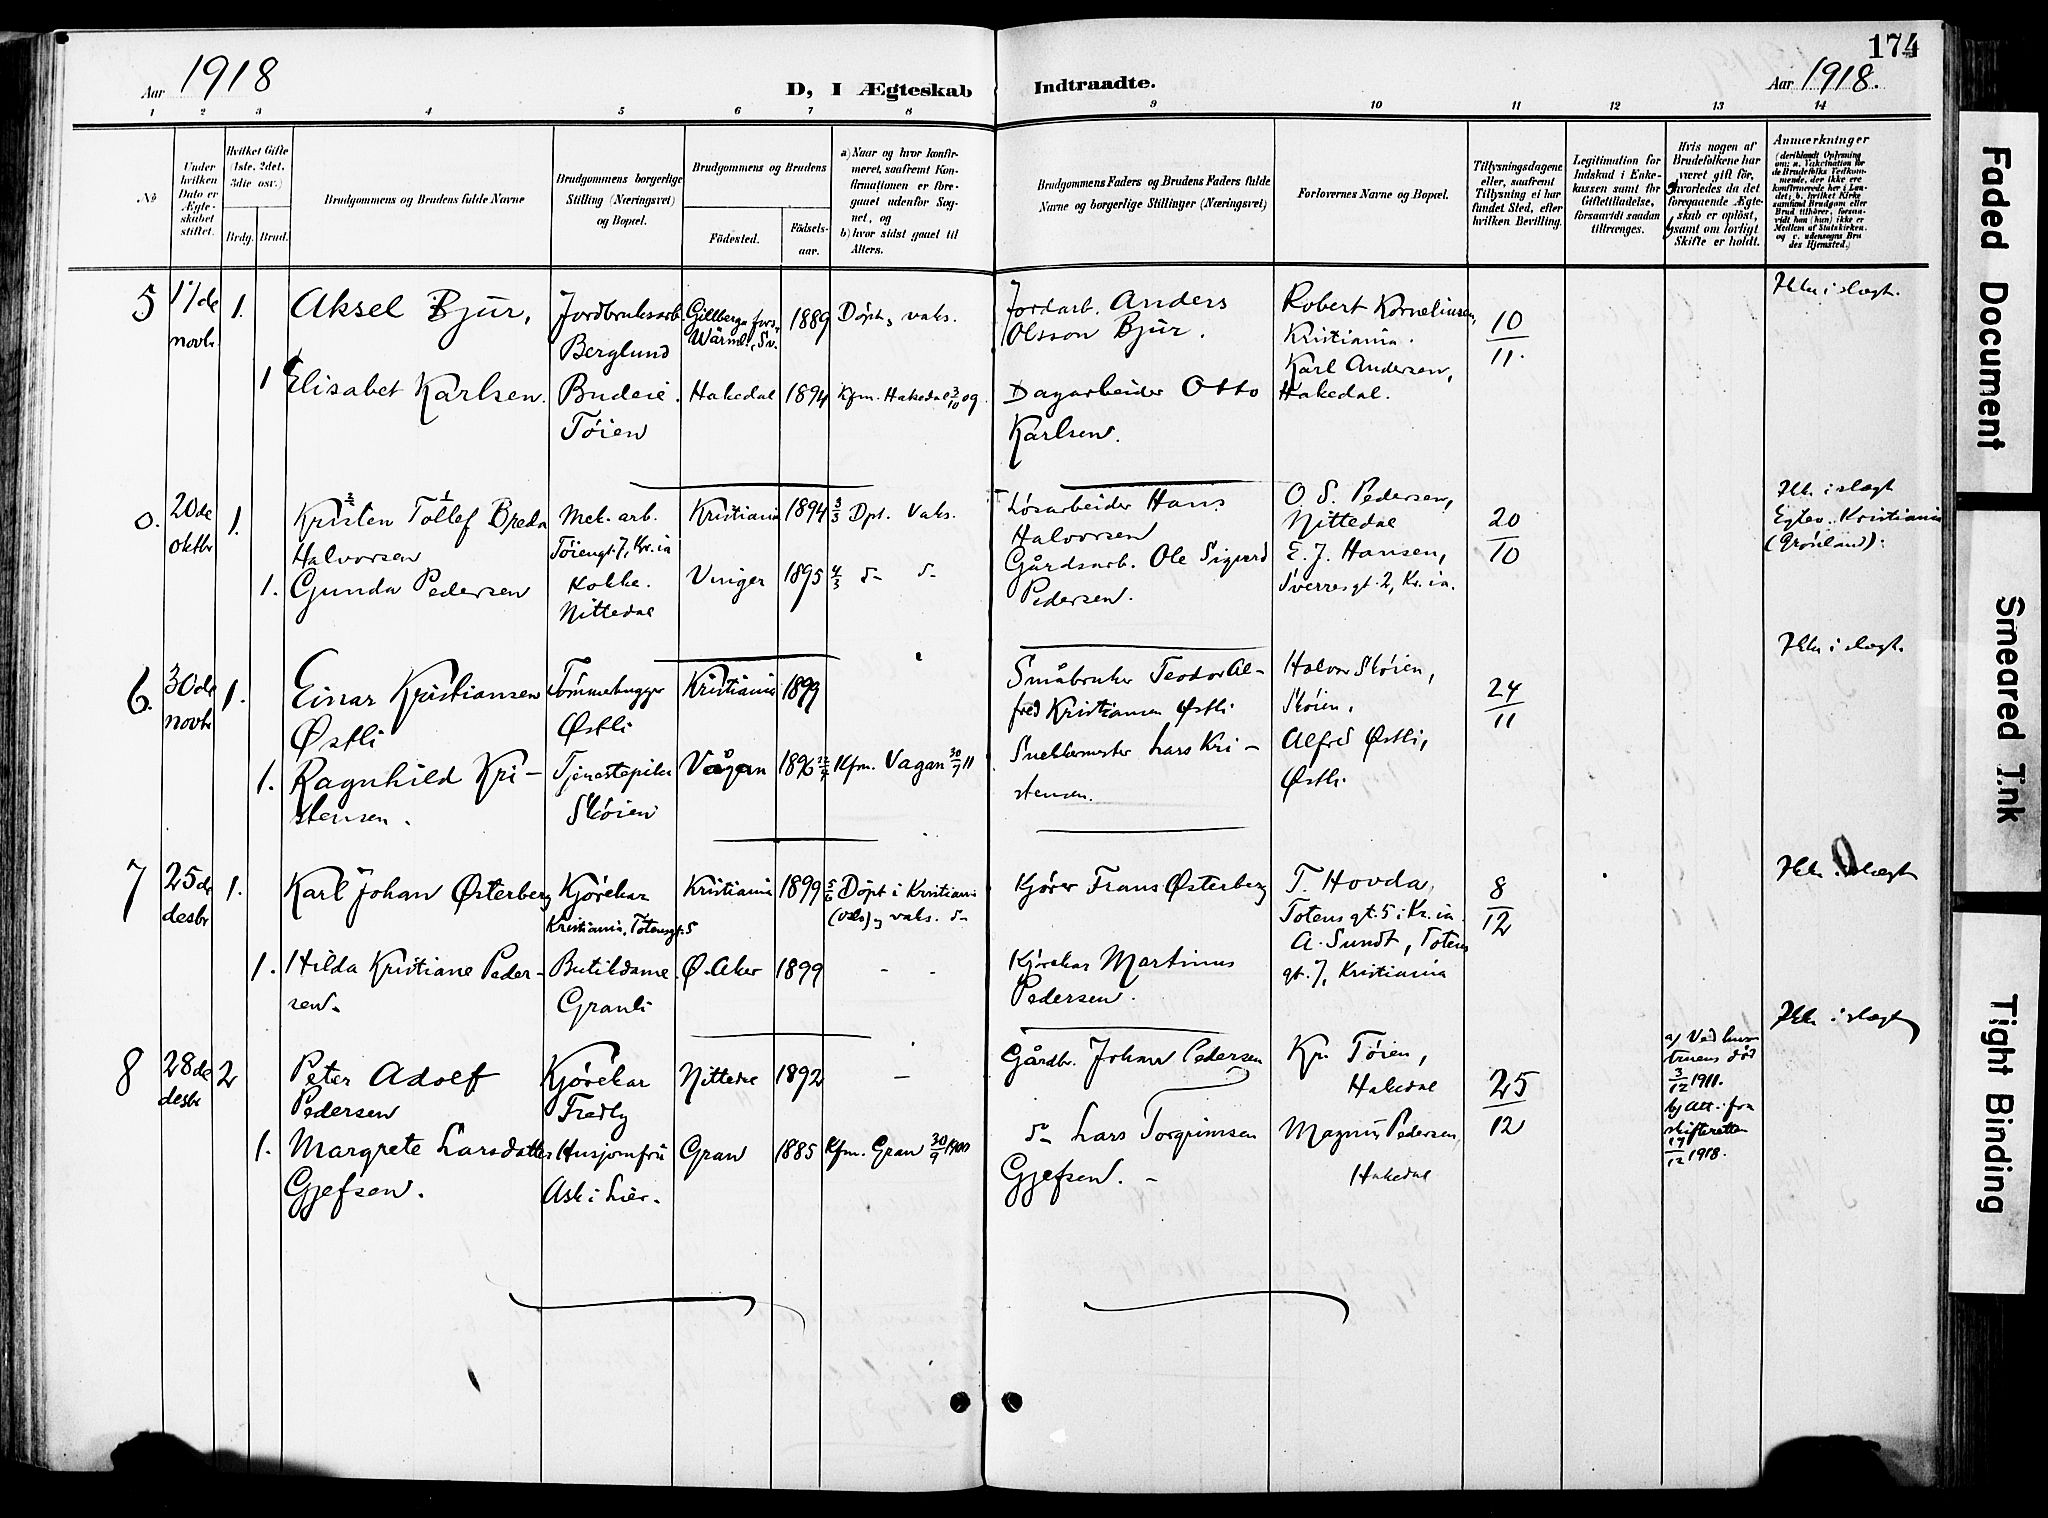 174
Aar 1918
D, I Ægteskab Indtraadte.
Aar 1918.
1 2 3 4 5 6 7 8 9 10 11 12 13 14
No
Under hvilken Dato er Ægteskabet stiftet.
Hvilket Gifte (1ste, 2det, 3die osv.)
Brdg. Brud.
Brudgommens og Brudens fulde Navne
Brudgommens borgerlige Stilling (Næringsvei) og Bopæl.
Brudgommens og Brudens
Fødested.
Fødselsaar.
a) Naar og hvor konfirmeret, saafremt Konfirmationen er foregaaet udenfor Sognet, og
b) hvor sidst gaaet til Alters.
Brudgommens Faders og Brudens Faders fulde Navne og borgerlige Stillinger (Næringsvei)
Forlovernes Navne og Bopæl.
Tillysningsdagene eller, saafremt Tillysning ei har fundet Sted, efter hvilken Bevilling.
Legitimation for Indskud i Enkekassen samt for Giftetilladelse, forsaavidt saadan tiltrænges.
Hvis nogen af Brudefolkene har været gift før, hvorledes da det foregaaende Ægteskab er opløst, samt om lovligt Skifte er holdt.
Anmærkninger
(deriblandt Oplysning om: a. Vakcination for de Brudefolks Vedkommende, der ikke ere konfirmerede her i Landet; b. hvilket Kirkesamfund Brudgom eller Brud tilhører, forsaavidt han (hun) ikke er Medlem af Statskirken. og c. udensogns Brudes Hjemsted.)
5 17de novbr. 1. Aksel Bjur, Jordbruksarb. Berglund Gillberga fors. Wärml., Sv. 1889 Døpt, vaks. Jordarb. Anders Olsson Bjur. Robert Korneliusen, Kristiania. 10/11. Ikke i slægt.
1 Elisabet Karlsen. Budeie. Tøien Hakedal 1894 Kfm. Hakedal 3/10 09. Dagarbeider Otto Karlsen. Karl Andersen, Hakedal.
0. 20de oktbr 1. Kristen Tollef Breda Halvorsen Mek. arb. Tøiengt. 7, Kr.ia Kristiania 1894 3/3 Dpt. Vaks. Løsarbeider Hans Halvorsen O S. Pedersen, Nittedal 20/10 Ikke i slægt Egtev. Kristiania (Grønland).
1. Gunda Pedersen Kokke. Nittedal Vinger 1895 4/3 d- d- Gårdsarb. Ole Sigurd Pedersen. E. J. Hansen, Sverresgt. 2, Kr.ia.
6. 30de novbr 1. Einar Kristiansen Østli Tømmerhugger Østli Kristiania 1899 Småbruker Teodor Alfred Kristiansen Østli Halvor Skøien, Skøien. 24/11 Ikke i slægt.
1. Ragnhild Kristensen. Tjenestepike Skøien Vågan 1896 Kfm. Vagan 30/7 11 Snekkermester Lars Kristensen. Alfred Østli, Østli.
7 25de desbr 1. Karl Johan Østerberg Kjørekar Kristiania, Totensgt. 5 Kristiania 1899 5/6 Døpt i Kristiania vaks. d- Kjører Frans Østerberg T. Hovda, Totensgt. 5 i Kr.ia. 8/12 Ikke i slægt
1. Hilda Kristiane Pedersen. Butikdame. Granli Ø. Aker 1899 - - Kjørekar Martinus Pedersen. A. Sundt, Totensgt. 7, Kristiania
8 28de desbr 2 Peter Adolf Pedersen Kjørekar Fredly Nittedal 1892 - Gårdbr. Johan Pedersen Kr. Tøien, Hakedal 25/12 a) Ved hustruens død 3/12 1911. b) Att. fra skifteretten 17/12 1918. Ikke i slægt
1. Margrete Larsdatter Gjefsen. Husjomfru Ask i Lier. Gran 1885 Kfm. Gran 30/9 1900 d- Lars Torgrimsen Gjefsen. - Magnus Pedersen, Hakedal
Faded Document
Smeared Ink
Tight Binding